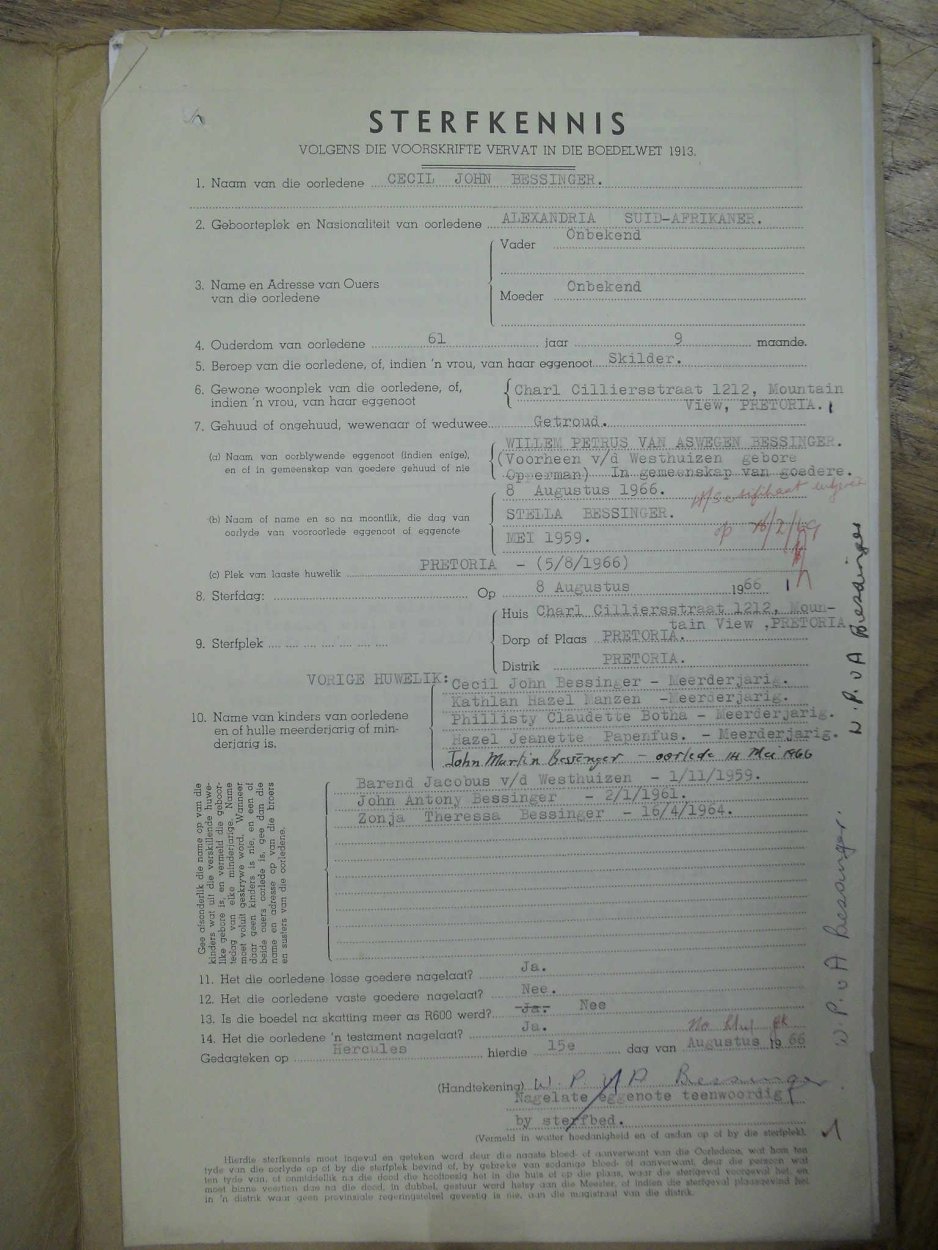 STERFKENNIS
VOLGENS DIE VOORSKRIFTE VERVAT IN DIE BOEDELWET 1913.
1. Naam van die oorledene CECIL JOHN BESSINGER.
2. Geboorteplek en Nasionaliteit van oorledene ALEXANDRIA SUID-AFRIKANER.
3. Name en Adresse van Ouers
van die oorledene
Vader Onbekend
Moeder Onbekend
4. Ouderdom van oorledene 61 jaar 9 maande.
5. Beroep van die oorledene, of, indien 'n vrou, van haar eggenoot Skilder.
6. Gewone woonplek van die oorledene, of,
indien 'n vrou, van haar eggenoot
Charl Cilliersstraat 1212, Mountain
View, PRETORIA.
7. Gehuud of ongehuud, wewenaar of weduwee Getroud.
(a) Naam van oorblywende eggenoot (indien enige),
en of in gemeenskap van goedere gehuud of nie
WILLEM PETRUS VAN ASWEGEN BESSINGER.
(Voorheen v/d Westhuizen gebore
Opperman) In gemeenskap van goedere.
8 Augustus 1966.
(b) Naam of name en so na moontlik, die dag van
oorlyde van vooroorlede eggenoot of eggenote
STELLA BESSINGER.
MEI 1959.
op
(c) Plek van laaste huwelik PRETORIA - (5/8/1966)
8. Sterfdag: Op 8 Augustus 1966
9. Sterfplek
Huis Charl Cilliersstraat 1212, Moun-
tain View ,PRETORIA
Dorp of Plaas PRETORIA.
Distrik PRETORIA.
W. P. v A Bessinger
VORIGE HUWELIK:
10. Name van kinders van oorledene
en of hulle meerderjarig of min-
derjarig is.
Cecil John Bessinger - Meerderjarig.
Kathlan Hazel Nanzen -Meerderjarig.
Phillisty Claudette Botha - Meerderjarig.
Hazel Jeanette Papenfus. - Meerderjarig.
John Martin Bessenger - oorlede 14 Mei 1966
Gee afsonderlik die name op van die
kinders wat uit die verskillende huwe-
like gebore is, en vermeld die geboor-
tedag van elke minderjarige. Name
moet voluit geskrywe word. Wanneer
daar geen kinders is nie, en een of
beide ouers oorlede is, gee dan die
name en adresse op van die broers
en susters van die oorledene.
Barend Jacobus v/d Westhuizen - 1/11/1959.
John Antony Bessinger - 2/1/1961.
Zonja Theressa Bessinger - 16/4/1964.
W. P. v A Bessinger.
11. Het die oorledene losse goedere nagelaat? Ja.
12. Het die oorledene vaste goedere nagelaat? Nee.
13. Is die boedel na skatting meer as R600 werd? Ja. Nee
14. Het die oorledene 'n testament nagelaat? Ja.
Gedagteken op Hercules hierdie 15e dag van Augustus 1966
(Handtekening) W. P. v A Bessinger
Nagelate eggenote teenwoordig
by sterfbed.
(Vermeld in watter hoedanigheid en of aldan op of by die sterfplek).
Hierdie sterfkennis moet ingevul en geteken word deur die naaste bloed- of aanverwant van die Oorledene, wat hom ten
tyde van die oorlyde op of by die sterfplek bevind of, by gebreke van sodanige bloed- of aanverwant, deur die persoon wat
ten tyde van, of onmiddellik na die dood die hooftoesig het in die huis of op die plaas, waar die sterfgeval voorgeval het, en
moet binne veertien dae na die dood, in dubbel, gestuur word hetsy aan die Meester, of indien die sterfgeval plaasgevind het
in 'n distrik waar geen provinsiale regeringsetel gevestig is nie, aan die magistraat van die distrik.